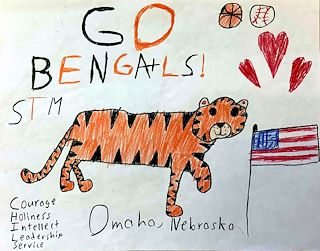 GO
BENGALS!
STM
Courage
Holiness
Intellect
Leadership
Service
Omaha, Nebraska